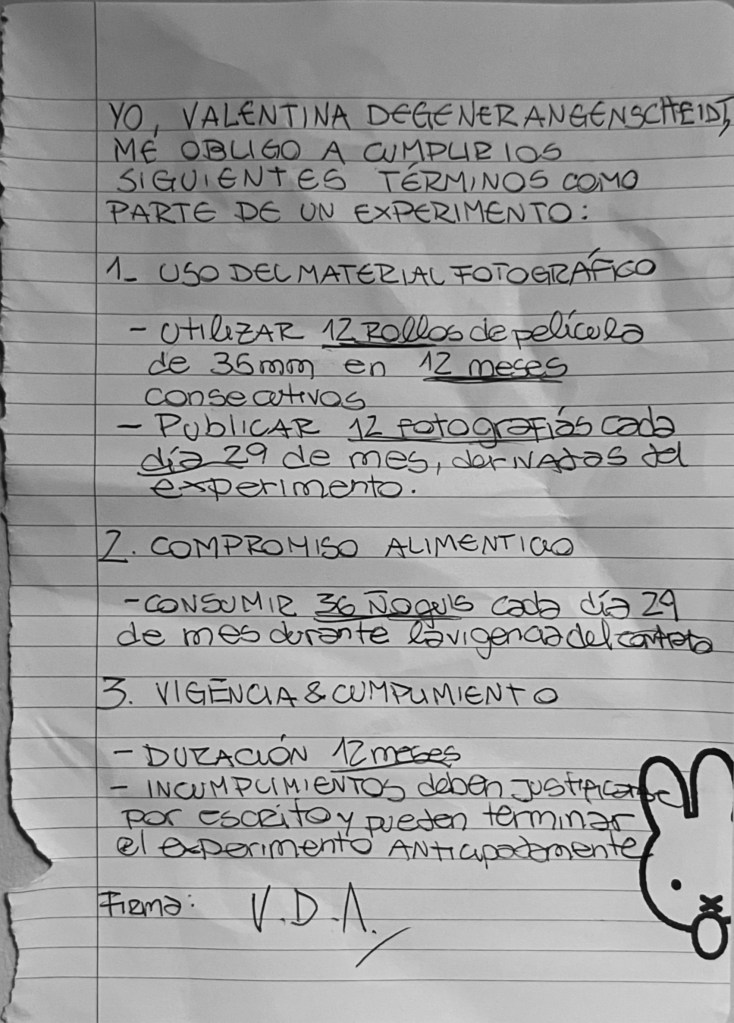 YO, VALENTINA DEGENER ANGENSCHEIDT,
ME OBLIGO A CUMPLIR LOS
SIGUIENTES TÉRMINOS COMO
PARTE DE UN EXPERIMENTO:
1_ USO DEL MATERIAL FOTOGRÁFICO
- UtilizAR 12 Rollos de película
de 35mm en 12 meses
consecutivos
- PublicAR 12 fotografías cada
día 29 de mes, derivadas del
experimento.
2. COMPROMISO ALIMENTICIO
- CONSUMIR 36 Ñoquis cada día 29
de mes durante la vigencia del contrato
3. VIGENCIA & CUMPLIMIENTO
- DURACIÓN 12 meses
- INCUMPLIMIENTOS deben justificarse
por escrito y pueden terminar
el experimento ANticipadamente
Firma: V.D.A.